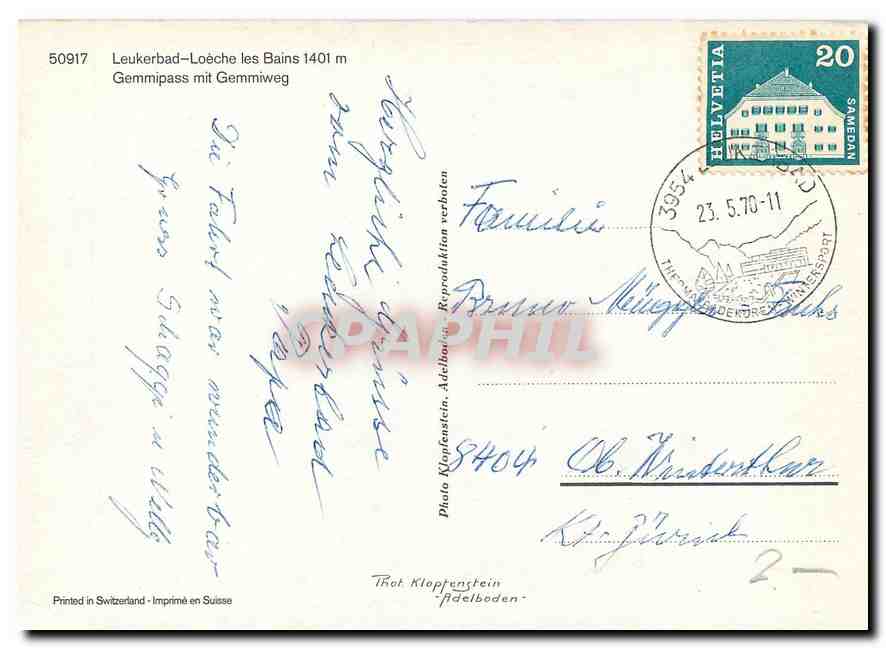 50917 Leukerbad–Loèche les Bains 1401 m
Gemmipass mit Gemmiweg
HELVETIA
20
SAMEDAN
3954 LEUKERBAD
23.5.70-11
THERMALBADEKUREN WINTERSPORT
Herzliche Grüsse
vom Leukerbad
Die Fahrt war wunderbar
Gruss
Photo Klopfenstein, Adelboden - Reproduktion verboten
Familie
Bruno
8404 Ob. Winterthur
Kt. Zürich
2.—
Phot. Klopfenstein
-Adelboden-
Printed in Switzerland - Imprimé en Suisse
CPAPHIL